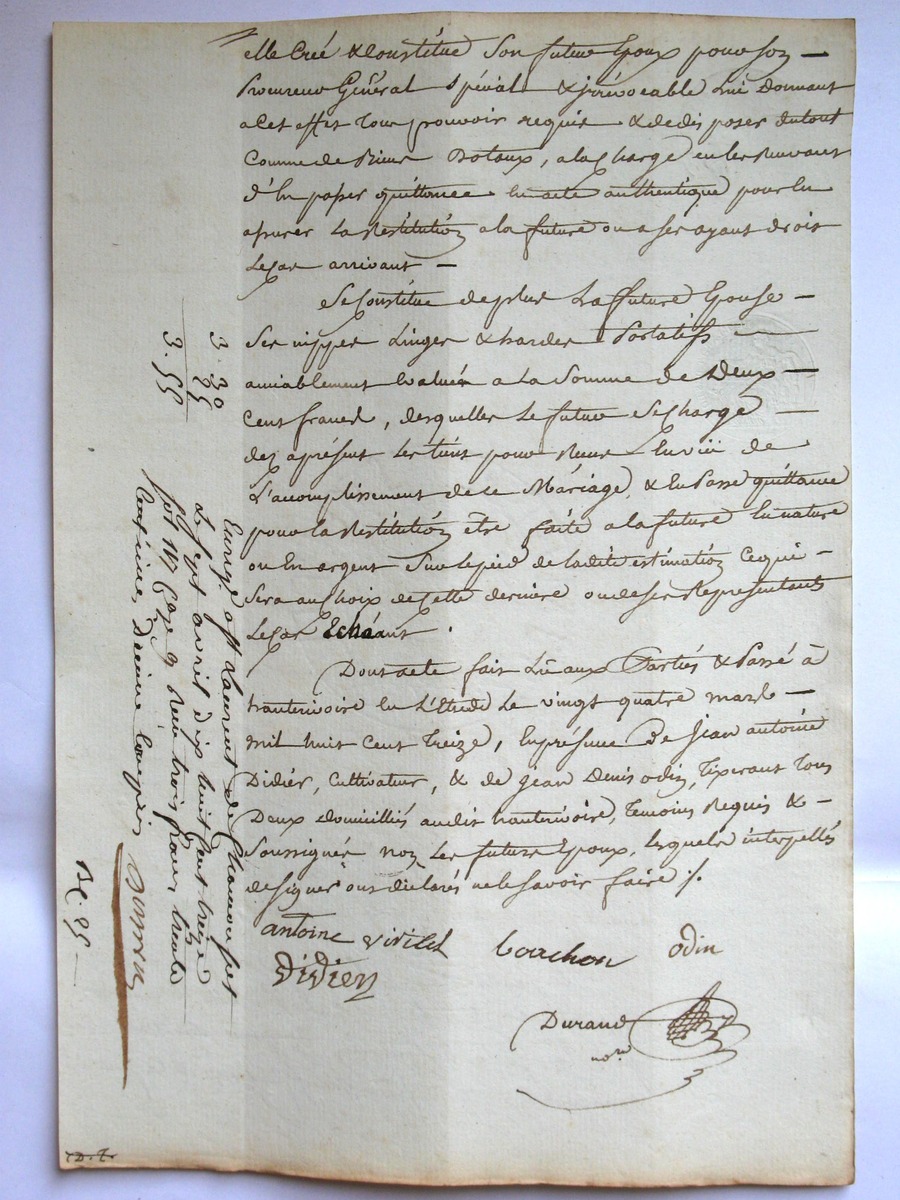 elle Crée & Constitue Son futur Epoux pour son —
Procureur Général Spécial & jrrévocable Lui Donnant
a Cet effet Tous pouvoir requis & de dis poser du tout
Comme de Biens Dotaux, a la Charge en les Recevant
d'En passer quittance en acte authentique pour en
assurer La Restitution a la future ou a ses ayant droit
Le Cas arrivant —
Se Constitue de plus La future Epouse —
Ses nippes Linges & hardes Portatifs —
amiablement Evalués a La Somme de Deux —
Cent francs, desquelles Le futur Se Charge —
dez aprésent Les tient pour Reçus En vüe de
L'acomplissement de Ce Mariage, & En Passe quittance
pour la Restitution être faite a la future En nature
ou En argent Sur le pied de la dite estimation Ce qui —
Sera au Choix de Cette dernière ou de ses Représentants
Le Cas Echéant .
Dont acte fait Lû aux Parties & Passé à
hauterivoire En L'Etude Le vingt quatre mars —
mil huit Cent Treize, En présence De Jean antoine
Didier, Cultivateur, & de Jean Denis odin, Tixerant Tous
Deux domiciliés audit hauterivoire, Temoins Requis & —
Soussignés noz Les futurs Epoux, Lesquels interpellés
de signer ont déclarés ne le Savoir faire ./.
antoine
odin
Didier
Durand
no.re
3. 30
3. 55
Enregé a St Laurent de Chamousset
Le sept avril dix huit Cent treize
fol 147 Case 9 Reçu trois francs trente
Centimes, Decime Compris